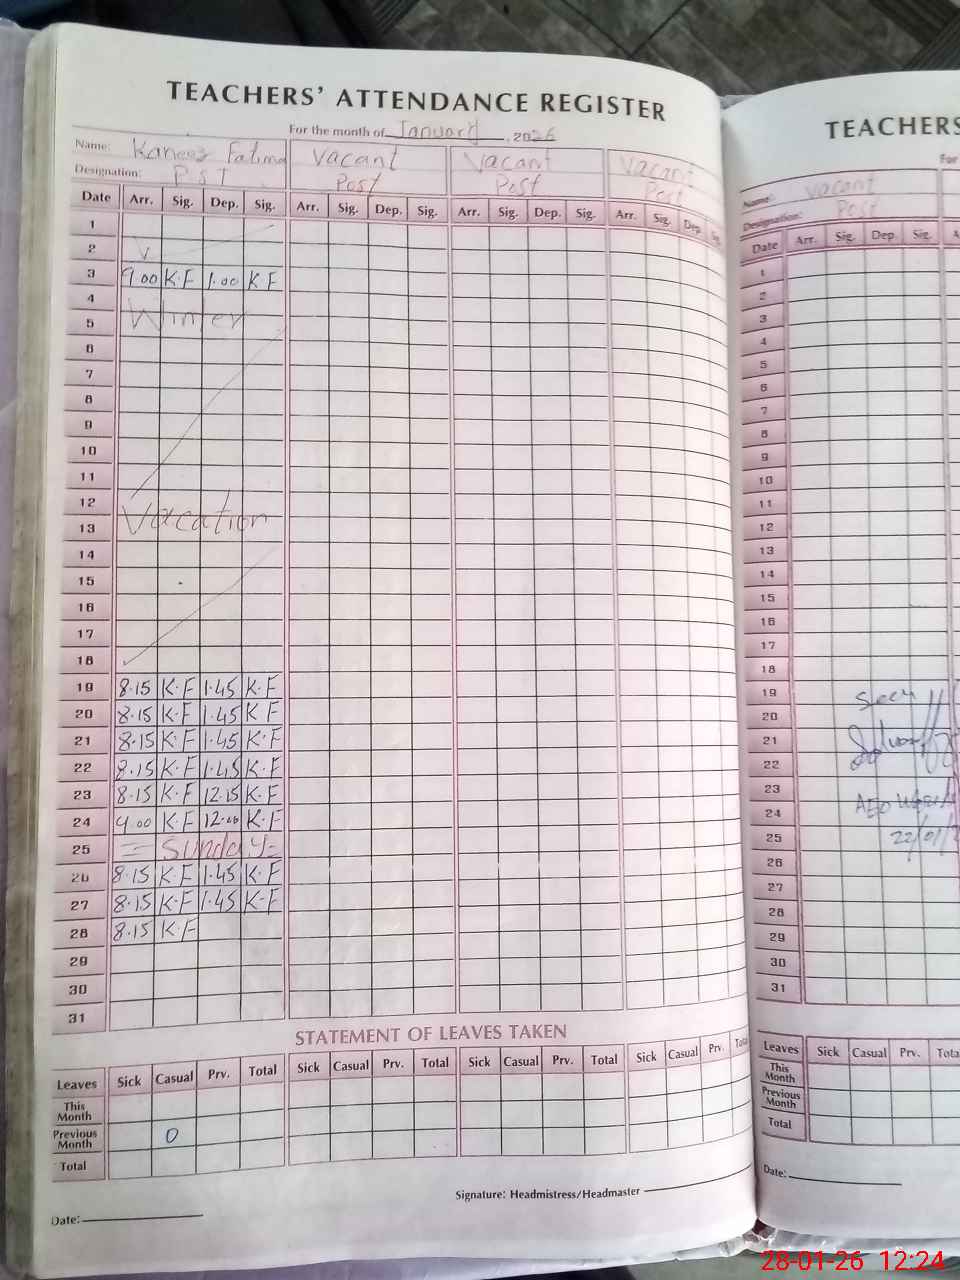 TEACHERS' ATTENDANCE REGISTER
For the month of January, 2026
Name: Kaneez Fatima Vacant Vacant Vacant
Designation: P.S.T Post Post Post
Date Arr. Sig. Dep. Sig. Arr. Sig. Dep. Sig. Arr. Sig. Dep. Sig. Arr. Sig. Dep. Sig.
1
2
3 9.00 K.F 1.00 K.F
4 Winter
5
6
7
8
9
10
11
12
13 Vacation
14
15
16
17
18
19 8.15 K.F 1.45 K.F
20 8.15 K.F 1.45 K F
21 8.15 K.F 1.45 K.F
22 8.15 K.F 1.45 K.F
23 8.15 K.F 12.15 K.F
24 9.00 K.F 12.00 K.F
25 = Sunday =
26 8.15 K.F 1.45 K.F
27 8.15 K.F 1.45 K.F
28 8.15 K.F
29
30
31
STATEMENT OF LEAVES TAKEN
Leaves Sick Casual Prv. Total Sick Casual Prv. Total Sick Casual Prv. Total Sick Casual Prv. Total
This Month
Previous Month 0
Total
Signature: Headmistress/Headmaster
Date:
TEACHERS
For
Name: Vacant
Designation: Post
Date Arr. Sig. Dep. Sig. A
1
2
3
4
5
6
7
8
9
10
11
12
13
14
15
16
17
18
19 Seen
20
21
22
23
24 AEO
25 22/01/
26
27
28
29
30
31
Leaves Sick Casual Prv. Tota
This Month
Previous Month
Total
Date:
28-01-26 12:24